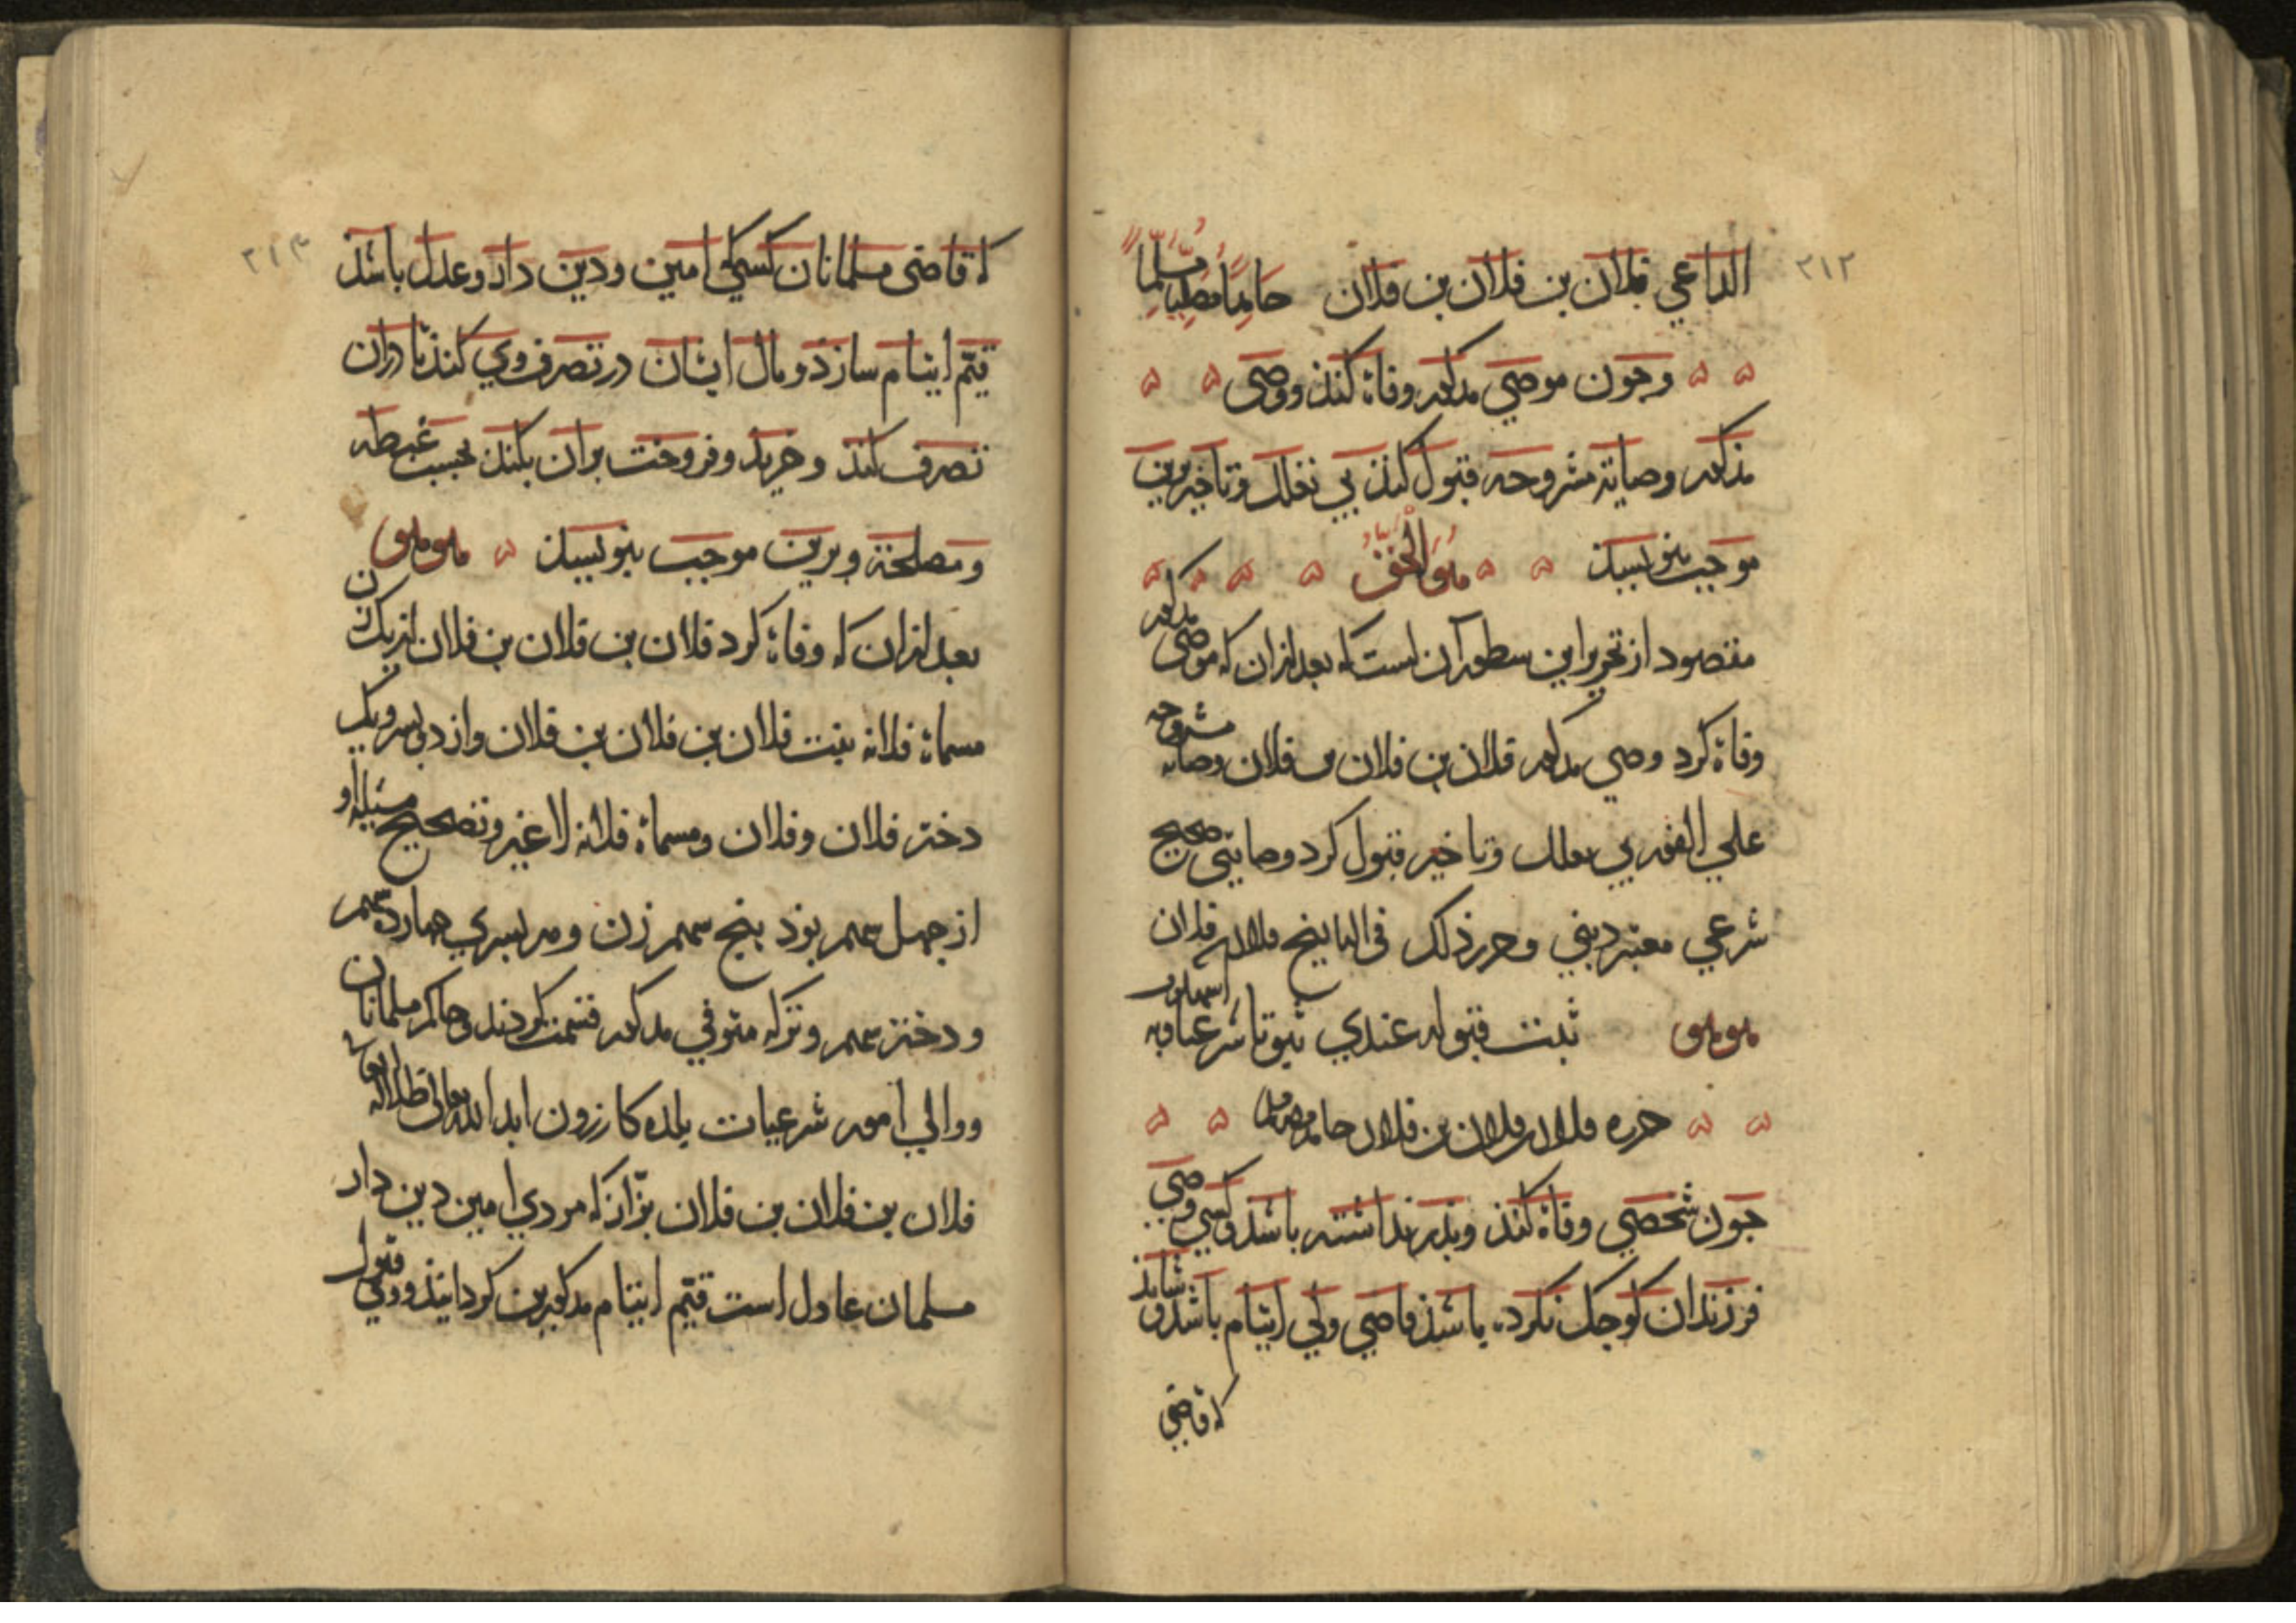 ٢١٢
الداعي فلان بن فلان بن فلان حامدًا مصليًا مسلمًا
وجون موصي مذكور وفاة كنذ ووصى
مذكور وصاية مشروحه قبول كنذ بي تعلل وتاخير برين
موجب بنويسذ هو الحق
مقصود از تحرير اين سطور آن است كه بعد از ان كه موصى مذكور
وفاة كرد وصي مذكور فلان بن فلان بن فلان وصايه مشروحه
على الفور بي تعلل وتاخير قبول كرد وصايتى صحيح
شرعي معتبر ديني وحرر ذلك في التاريخ فلان
هو هو ثبت قبوله عندي ثبوتا شرعيا وبه
حرره فلان بن فلان بن فلان حامدا
جون شخصي وفاة كنذ وبدر نداشته باشذ وكسي وصي
فرزندان كوجك نكرده باشذ قاضي ولي ايتام باشذ و شايذ
كه قاضي
٢١٣
كه قاضى مسلمانان كسي كه امين ودين دار وعدل باشذ
قيّم ايتام سازذ ومال ايشان در تصرف وي كنذ تا دران
تصرف كنذ وخريذ وفروخت بران بكنذ بحسب غبطه
ومصلحة وبرين موجب بنويسيذ هو هو
بعد از ان كه وفاة كرد فلان بن فلان بن فلان از يك زن
مسماة فلانه بنت فلان بن فلان بن فلان واز دو بسر ويك
دختر فلان وفلان ومسماة فلانه لا غير وتصحيح مسئله او
از جهل سهم بوذ بنج سهم زن وهر بسري جهارده سهم
ودختر سهم وتركه متوفي مذكور قسمت كردند وحاكم مسلمانان
ووالي امور شرعيات بلده كازرون ابد الله تعالى ظلاله
فلان بن فلان بن فلان بزّاز كه مردي امين دين دار
مسلمان عادل است قيّم ايتام مذكورين كردانيذ ووي قبول